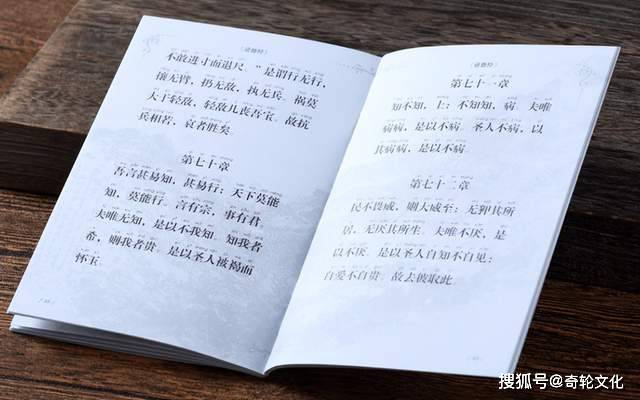 〔道德经〕
不敢进寸而退尺。”是谓行无行，
攘无臂，扔无敌，执无兵。祸莫
大于轻敌，轻敌几丧吾宝。故抗
兵相若，哀者胜矣。
第七十章
吾言甚易知，甚易行；天下莫能
知，莫能行。言有宗，事有君。
夫唯无知，是以不我知。知我者
希，则我者贵。是以圣人被褐而
怀玉。
〔道德经〕
第七十一章
知不知，上；不知知，病。夫唯
病病，是以不病。圣人不病，以
其病病，是以不病。
第七十二章
民不畏威，则大威至；无狎其所
居，无厌其所生。夫唯不厌，是
以不厌。是以圣人自知不自见；
自爱不自贵。故去彼取此。
搜狐号@奇轮文化